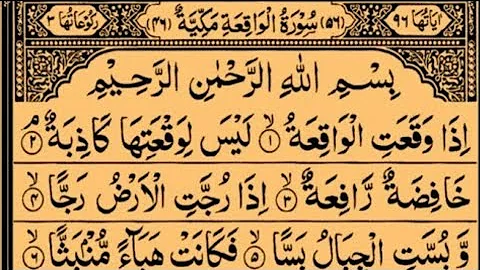 اٰيَاتُهَا ٩٦ (٥٦) سُوْرَةُ الْوَاقِعَةِ مَكِّيَّةٌ (٤٦) رُكُوْعَاتُهَا ٣
بِسْمِ اللّٰهِ الرَّحْمٰنِ الرَّحِيْمِ
اِذَا وَقَعَتِ الْوَاقِعَةُ ۙ﴿١﴾ لَيْسَ لِوَقْعَتِهَا كَاذِبَةٌ ۘ﴿٢﴾
خَافِضَةٌ رَّافِعَةٌ ۙ﴿٣﴾ اِذَا رُجَّتِ الْاَرْضُ رَجًّا ۙ﴿٤﴾
وَّ بُسَّتِ الْجِبَالُ بَسًّا ۙ﴿٥﴾ فَكَانَتْ هَبَآءً مُّنْۢبَثًّا ۙ﴿٦﴾